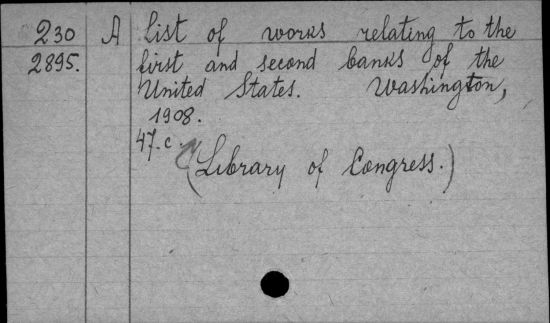 230 A List of works relating to the
2895. first and second banks of the
United States. Washington,
1908.
47.c.
(Library of Congress.)